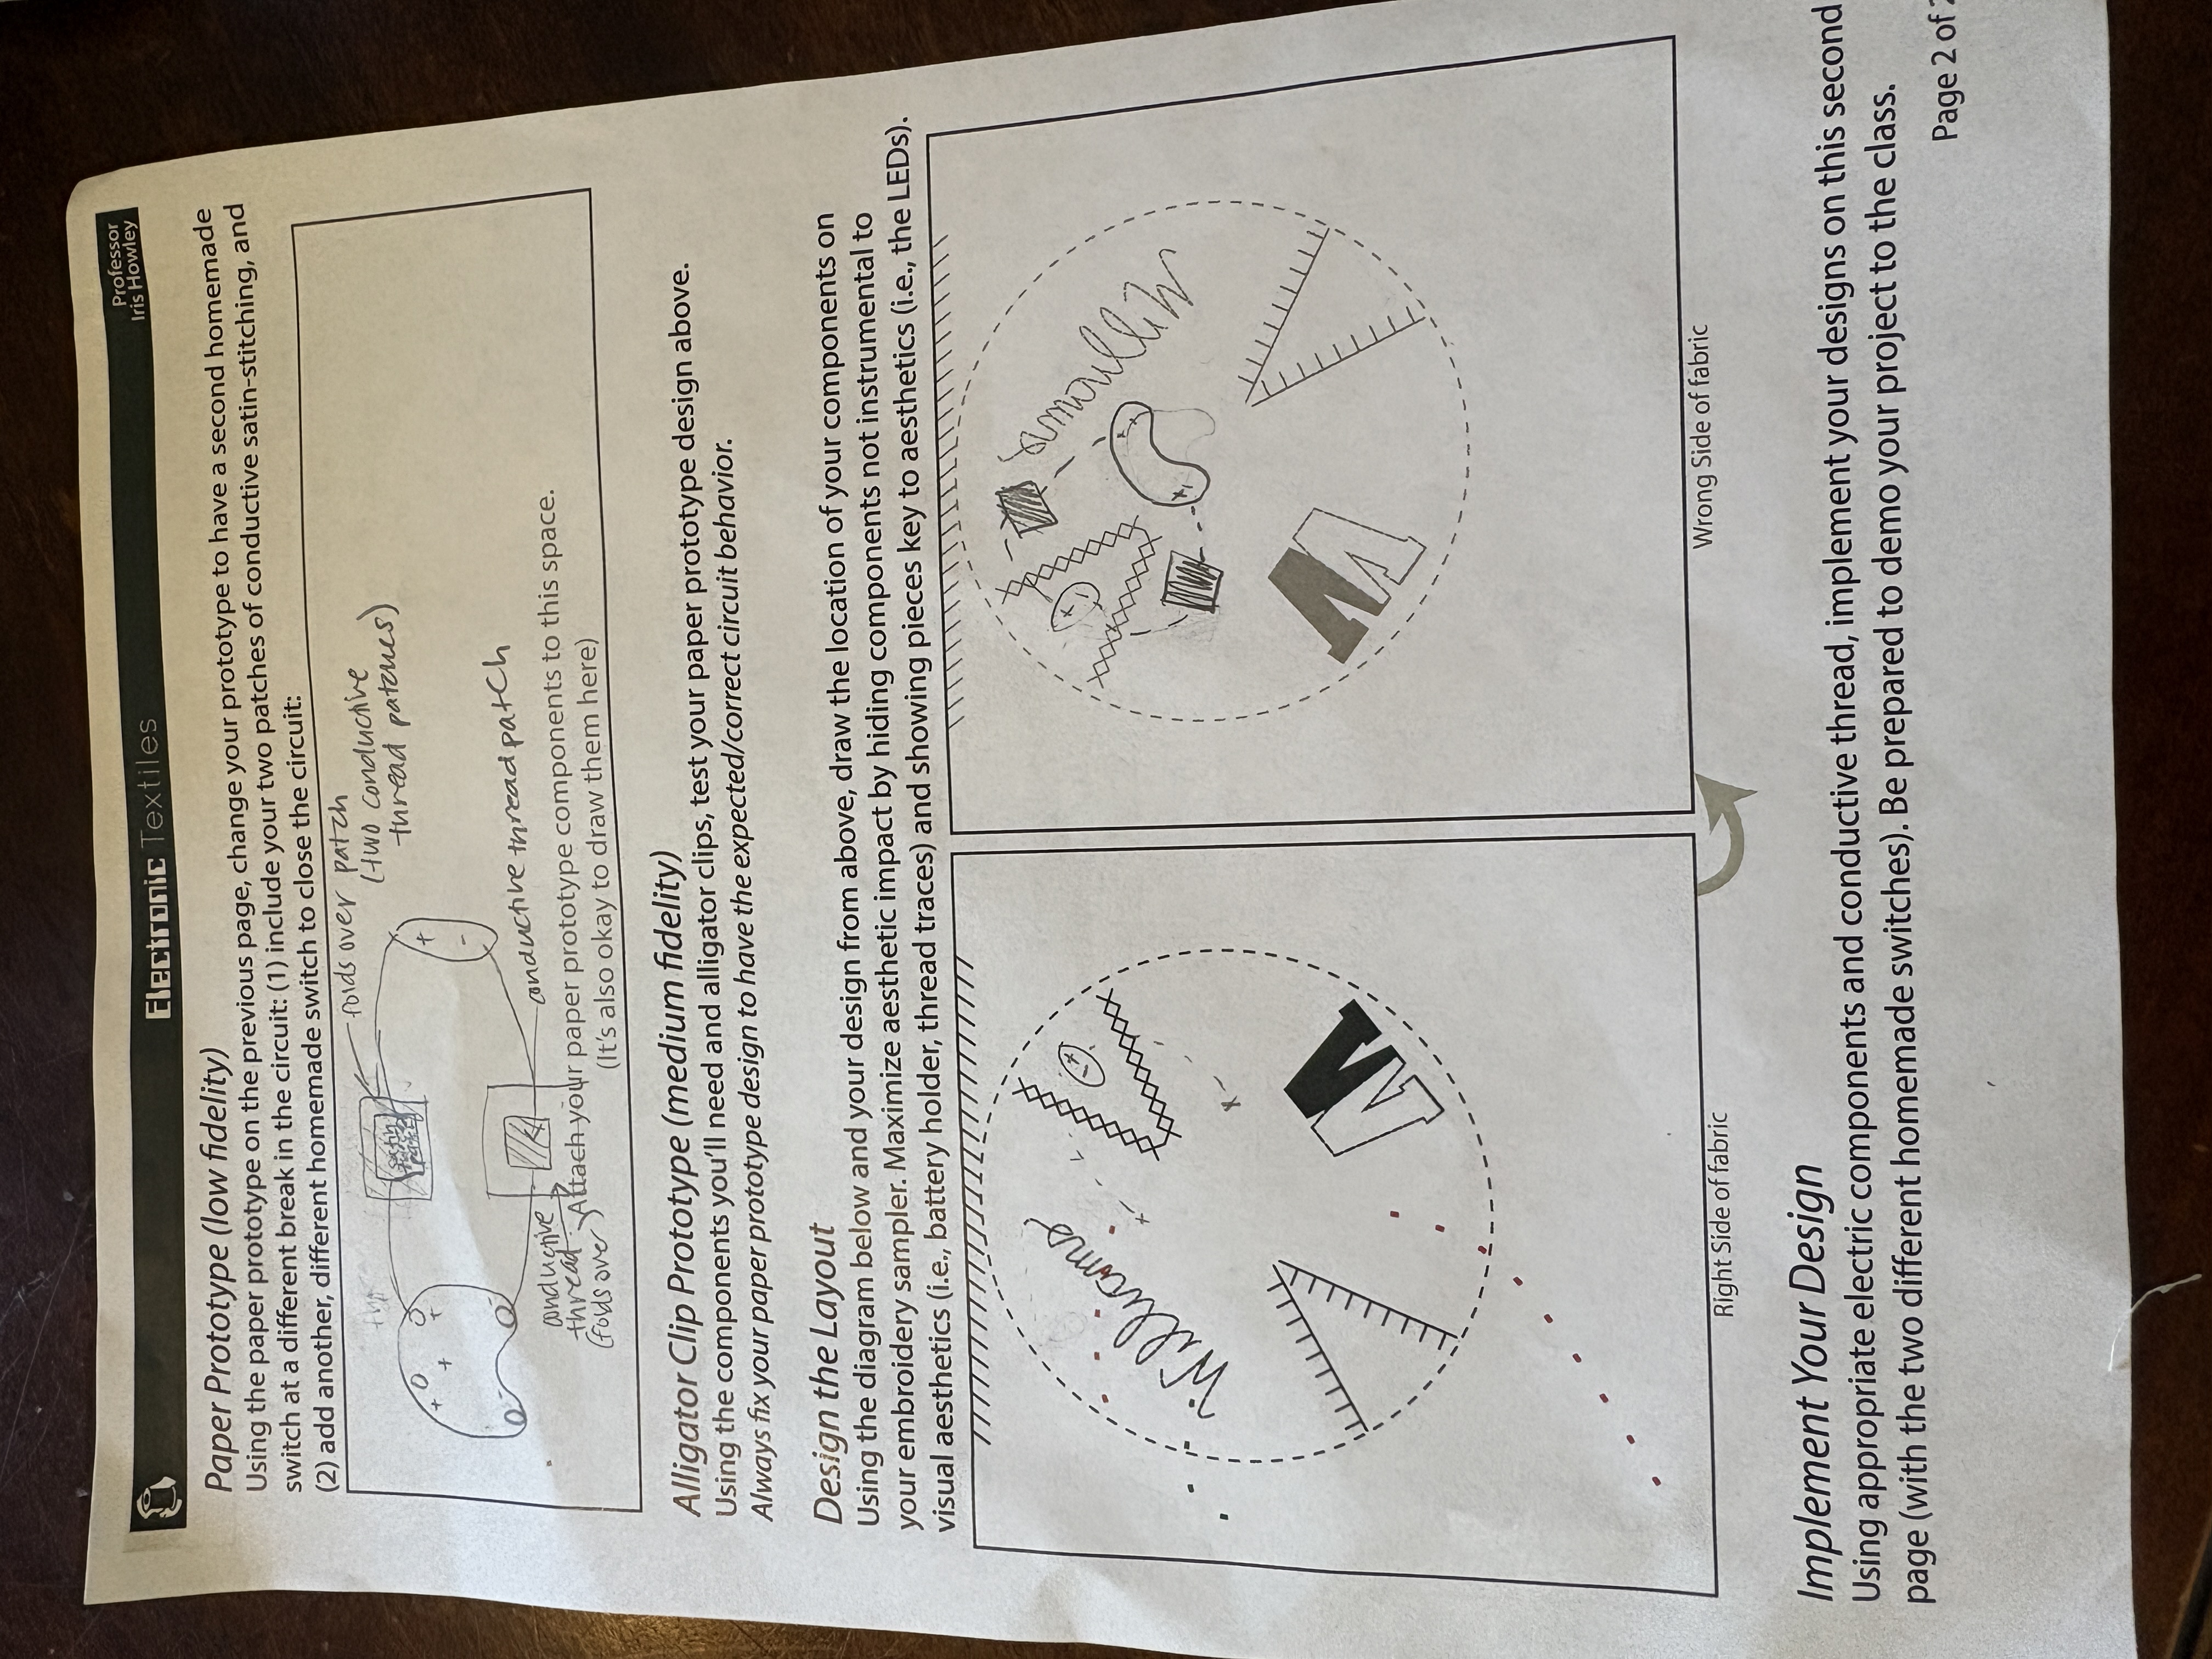 Professor
Iris Howley
Electronic Textiles
Paper Prototype (low fidelity)
Using the paper prototype on the previous page, change your prototype to have a second homemade
switch at a different break in the circuit: (1) include your two patches of conductive satin-stitching, and
(2) add another, different homemade switch to close the circuit:
folds over patch
(two conductive
thread patches)
satin
patch
+ + +
+
-
- -
conductive thread patch
conductive
thread
(folds over)
Attach your paper prototype components to this space.
(It's also okay to draw them here)
Alligator Clip Prototype (medium fidelity)
Using the components you'll need and alligator clips, test your paper prototype design above.
Always fix your paper prototype design to have the expected/correct circuit behavior.
Design the Layout
Using the diagram below and your design from above, draw the location of your components on
your embroidery sampler. Maximize aesthetic impact by hiding components not instrumental to
visual aesthetics (i.e., battery holder, thread traces) and showing pieces key to aesthetics (i.e., the LEDs).
Williams
W
Williams
W
Right Side of fabric
Wrong Side of fabric
Implement Your Design
Using appropriate electric components and conductive thread, implement your designs on this second
page (with the two different homemade switches). Be prepared to demo your project to the class.
Page 2 of 2